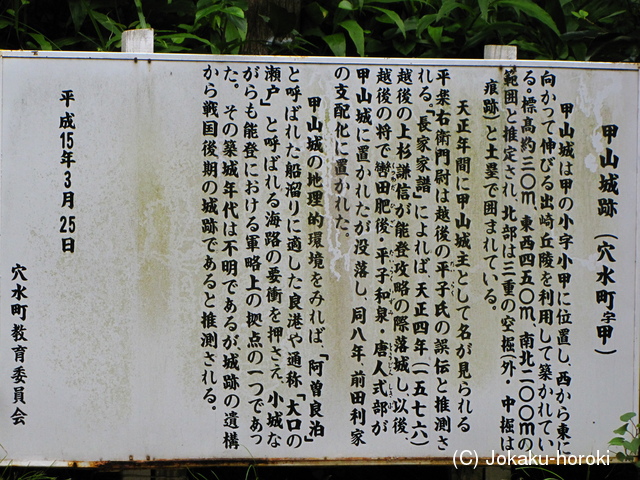 甲山城跡（穴水町字甲）
甲山城は甲の小字小甲に位置し、西から東に
向かって伸びる出崎丘陵を利用して築かれてい
る。標高約三〇m、東西四五〇m、南北二〇〇mの
範囲と推定され、北部は三重の空掘（外・中掘は
痕跡）と土塁で囲まれている。
天正年間に甲山城主として名が見られる
平楽右衛門尉は越後の平子氏の誤伝と推測さ
れる。「長家家譜」によれば、天正四年（一五七六）
越後の上杉謙信が能登攻略の際落城し、以後、
越後の将で轡田肥後・平子和泉・唐人式部が
甲山城に置かれたが没落し、同八年、前田利家
の支配化に置かれた。
甲山城の地理的環境をみれば、「阿曽良泊」
と呼ばれた船溜りに適した良港や通称「大口の
瀬戸」と呼ばれる海路の要衝を押さえ、小城な
がらも能登における軍略上の拠点の一つであっ
た。その築城年代は不明であるが、城跡の遺構
から戦国後期の城跡であると推測される。
平成15年3月25日
穴水町教育委員会
(C) Jokaku-horoki